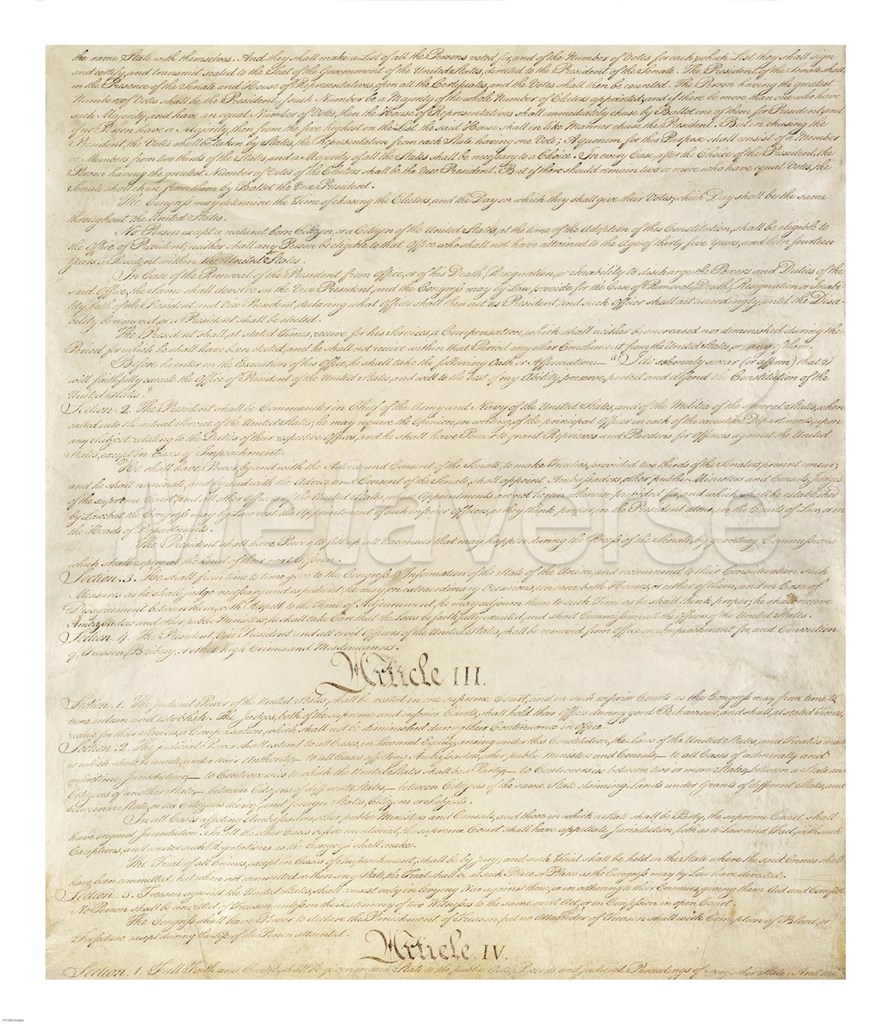 the same State with themselves. And they shall make a List of all the Persons voted for, and of the Number of Votes for each; which List they shall sign
and certify, and transmit sealed to the Seat of the Government of the United States, directed to the President of the Senate. The President of the Senate shall,
in the Presence of the Senate and House of Representatives, open all the Certificates, and the Votes shall then be counted. The Person having the greatest
Number of Votes shall be the President, if such Number be a Majority of the whole Number of Electors appointed; and if there be more than one who have
such Majority, and have an equal Number of Votes, then the House of Representatives shall immediately chuse by Ballot one of them for President; and
if no Person have a Majority, then from the five highest on the List the said House shall in like Manner chuse the President. But in chusing the
President, the Votes shall be taken by States, the Representation from each State having one Vote; A quorum for this Purpose shall consist of a Member
or Members from two thirds of the States, and a Majority of all the States shall be necessary to a Choice. In every Case, after the Choice of the President, the
Person having the greatest Number of Votes of the Electors shall be the Vice President. But if there should remain two or more who have equal Votes, the
Senate shall chuse from them by Ballot the Vice President.
The Congress may determine the Time of chusing the Electors, and the Day on which they shall give their Votes; which Day shall be the same
throughout the United States.
No Person except a natural born Citizen, or a Citizen of the United States, at the time of the Adoption of this Constitution, shall be eligible to
the Office of President; neither shall any Person be eligible to that Office who shall not have attained to the Age of thirty five Years, and been fourteen
Years a Resident within the United States.
In Case of the Removal of the President from Office, or of his Death, Resignation, or Inability to discharge the Powers and Duties of the
said Office, the Same shall devolve on the Vice President, and the Congress may by Law provide for the Case of Removal, Death, Resignation or Inabi-
lity, both of the President and Vice President, declaring what Officer shall then act as President, and such Officer shall act accordingly, until the Disa-
bility be removed, or a President shall be elected.
The President shall, at stated Times, receive for his Services, a Compensation, which shall neither be encreased nor diminished during the
Period for which he shall have been elected, and he shall not receive within that Period any other Emolument from the United States, or any of them.
Before he enter on the Execution of his Office, he shall take the following Oath or Affirmation:— "I do solemnly swear (or affirm) that I
will faithfully execute the Office of President of the United States, and will to the best of my Ability, preserve, protect and defend the Constitution of the
United States."
Section. 2. The President shall be Commander in Chief of the Army and Navy of the United States, and of the Militia of the several States, when
called into the actual Service of the United States; he may require the Opinion, in writing, of the principal Officer in each of the executive Departments, upon
any Subject relating to the Duties of their respective Offices, and he shall have Power to grant Reprieves and Pardons for Offences against the United
States, except in Cases of Impeachment.
He shall have Power, by and with the Advice and Consent of the Senate, to make Treaties, provided two thirds of the Senators present concur;
and he shall nominate, and by and with the Advice and Consent of the Senate, shall appoint Ambassadors, other public Ministers and Consuls, Judges
of the supreme Court, and all other Officers of the United States, whose Appointments are not herein otherwise provided for, and which shall be established
by Law: but the Congress may by Law vest the Appointment of such inferior Officers, as they think proper, in the President alone, in the Courts of Law, or in
the Heads of Departments.
metaverse
The President shall have Power to fill up all Vacancies that may happen during the Recess of the Senate, by granting Commissions
which shall expire at the End of their next Session.
Section. 3. He shall from time to time give to the Congress Information of the State of the Union, and recommend to their Consideration such
Measures as he shall judge necessary and expedient; he may, on extraordinary Occasions, convene both Houses, or either of them, and in Case of
Disagreement between them, with Respect to the Time of Adjournment, he may adjourn them to such Time as he shall think proper; he shall receive
Ambassadors and other public Ministers; he shall take Care that the Laws be faithfully executed, and shall Commission all the Officers of the United States.
Section. 4. The President, Vice President and all civil Officers of the United States, shall be removed from Office on Impeachment for, and Conviction
of, Treason, Bribery, or other high Crimes and Misdemeanors.
Article III.
Section. 1. The judicial Power of the United States, shall be vested in one supreme Court, and in such inferior Courts as the Congress may from time to
time ordain and establish. The Judges, both of the supreme and inferior Courts, shall hold their Offices during good Behaviour, and shall, at stated Times,
receive for their Services, a Compensation, which shall not be diminished during their Continuance in Office.
Section. 2. The judicial Power shall extend to all Cases, in Law and Equity, arising under this Constitution, the Laws of the United States, and Treaties made,
or which shall be made, under their Authority;— to all Cases affecting Ambassadors, other public Ministers and Consuls;— to all Cases of admiralty and
maritime Jurisdiction;— to Controversies to which the United States shall be a Party;— to Controversies between two or more States;— between a State and
Citizens of another State;— between Citizens of different States,— between Citizens of the same State claiming Lands under Grants of different States, and
between a State, or the Citizens thereof, and foreign States, Citizens or Subjects.
In all Cases affecting Ambassadors, other public Ministers and Consuls, and those in which a State shall be Party, the supreme Court shall
have original Jurisdiction. In all the other Cases before mentioned, the supreme Court shall have appellate Jurisdiction, both as to Law and Fact, with such
Exceptions, and under such Regulations as the Congress shall make.
The Trial of all Crimes, except in Cases of Impeachment, shall be by Jury; and such Trial shall be held in the State where the said Crimes shall
have been committed; but when not committed within any State, the Trial shall be at such Place or Places as the Congress may by Law have directed.
Section. 3. Treason against the United States, shall consist only in levying War against them, or in adhering to their Enemies, giving them Aid and Comfort.
No Person shall be convicted of Treason unless on the Testimony of two Witnesses to the same overt Act, or on Confession in open Court.
The Congress shall have Power to declare the Punishment of Treason, but no Attainder of Treason shall work Corruption of Blood, or
Forfeiture except during the Life of the Person attainted.
Article. IV.
Section. 1. Full Faith and Credit shall be given in each State to the public Acts, Records, and judicial Proceedings of every other State. And the